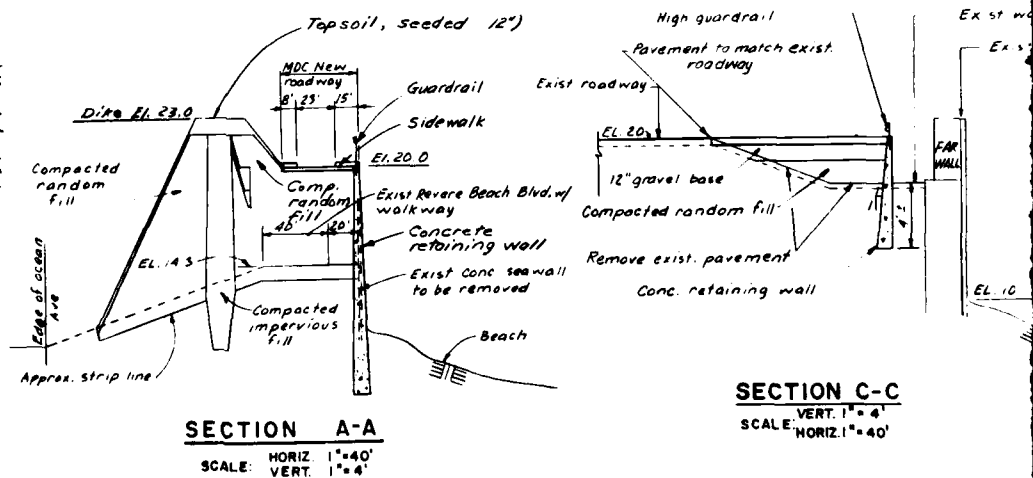 Topsoil, seeded 12")
MDC New
roadway
8' 23' 15'
Guardrail
Sidewalk
Dike El. 23.0
El. 20.0
Compacted
random
fill
Comp.
random
fill
Exist Revere Beach Blvd. w/
walkway
40' 20'
Concrete
retaining wall
EL. 14.5
Exist Conc seawall
to be removed
Edge of ocean
Ave
Compacted
impervious
fill
Beach
Approx. strip line
SECTION A-A
SCALE: HORIZ. 1"=40'
VERT. 1"=4'
High guardrail
Pavement to match exist.
roadway
Exist roadway
EL. 20
12" gravel base
Compacted random fill
Remove exist. pavement
Conc. retaining wall
1
4'±
FAR
WALL
Ex st
EL. 10
SECTION C-C
SCALE: VERT. 1"=4'
HORIZ. 1"=40'